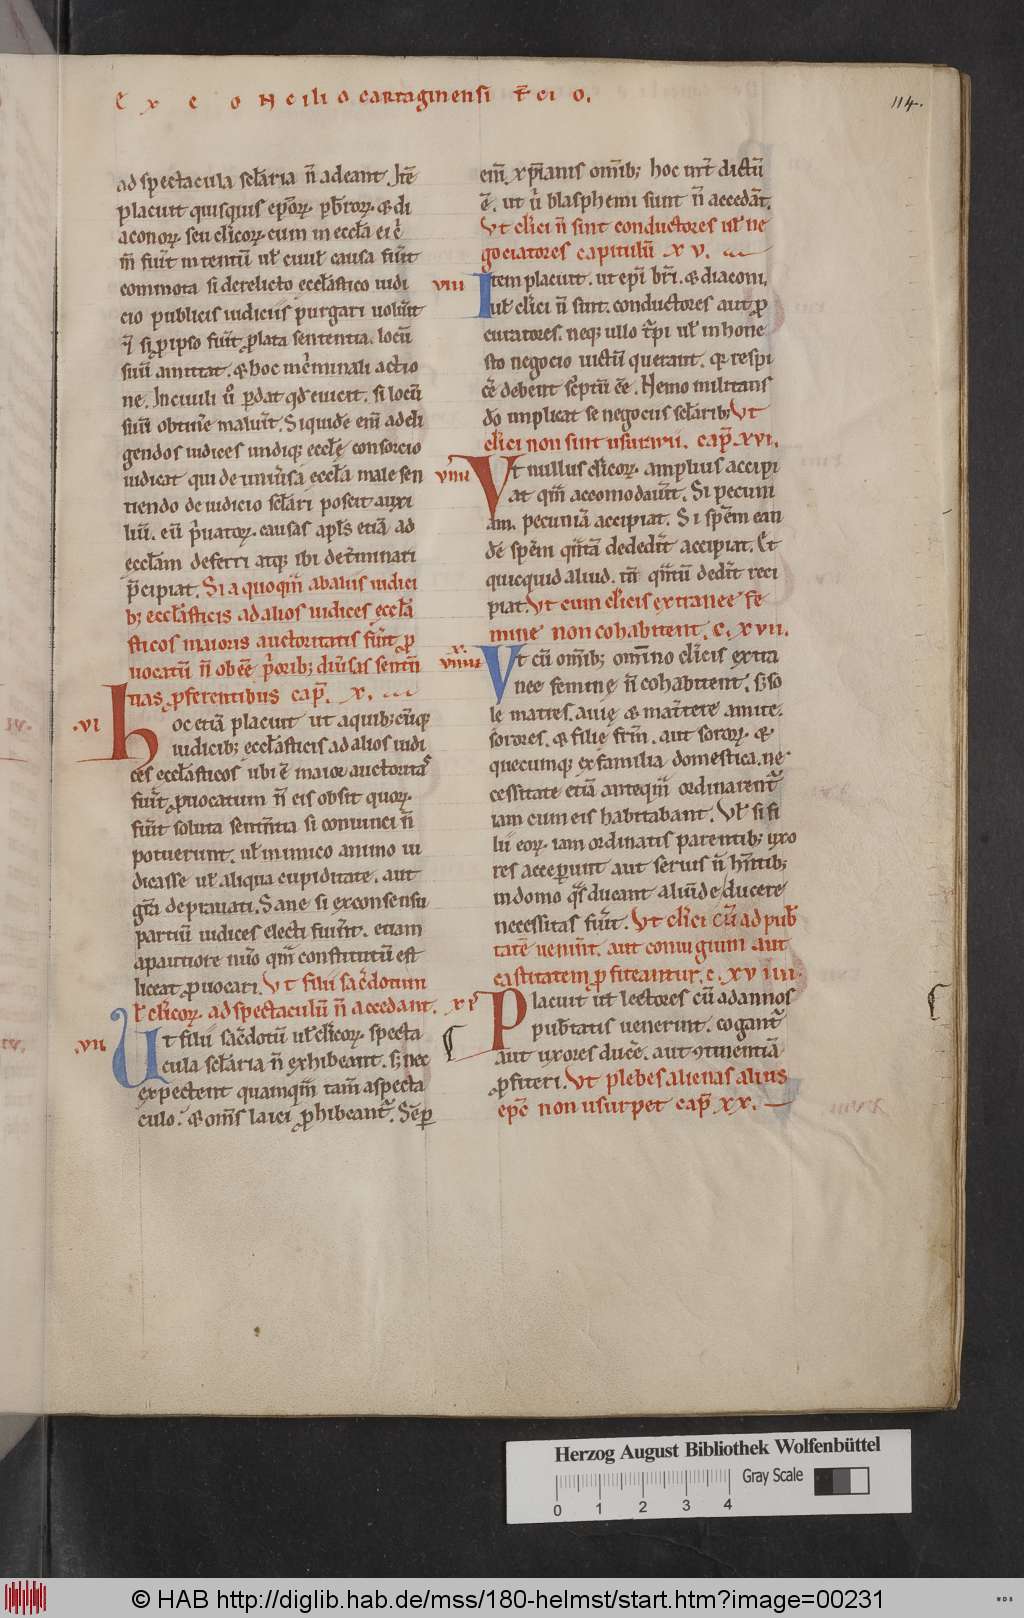 Ex concilio cartaginensi t̄cio.
114.
ad spectacula scl̄aria n̄ adeant. Itē
placuit quisquis ep̄orꝝ. pb̄rorꝝ. & di
aconorꝝ. seu cl̄icorꝝ. cum in eccl̄a ei c̓
m̄ fuīt intentū ul̄ ciuil̓ causa fuīt
commota si derelicto eccl̄astico iudi
cio publicis iudiciis purgari uolūt
suū amittat. & hoc in c̓minali actio
ne. In ciuili ū̓ ꝑdat qd̄ euicit. si locū
suū obtin̄e maluīt. Siquidē em̄ ad eli
gendos iudices undiqꝫ eccl̄ę consorcio
iudicat qui de uniūsa eccl̄a male sen
tiendo de iudicio scl̄ari poscit auxi
liū. cū p̓uatorꝝ. causas apl̄s etiā ad
eccl̄am deferri atqꝫ ibi det̓minari
p̄cipiat. Si a quoqm̄ abaliis iudici
bꝫ eccl̄asticis ad alios iudices eccl̄a
sticos maioris auctoritatis fuīt ꝓ
uocatū n̄ obēe p̓oribꝫ diūsis sentn̄
tias ꝓferentibus cap̄. x.
.vi
Hoc etiā placuit ut a quibꝫcūqꝫ
iudicibꝫ eccl̄asticis ad alios iudi
ces eccl̄asticos ubi ē maior auctoritas
fuīt ꝓuocatum n̄ eis obsit quorꝝ.
fuīt soluta sentn̄tia si conuinci n̄
potuerunt. ul̄ inimico animo iu
dicasse ul̄ aliqua cupiditate. aut
gr̄a deprauati. Sane si ex consensu
partiū iudices electi fuīnt. etiam
a pautiore nūo qm̄ constitutū est
liceat ꝓuocari. Ut filii sac̓dotum
ul̄ cl̄icorꝝ. ad spectaculū n̄ accedant. xi
.vii
Ut filii sac̓dotū ul̄ cl̄icorꝝ. specta
cula scl̄aria n̄ exhibeant. sꝫ nec
expectent quamqm̄ tam̄ a specta
culo. & om̄s laici ꝓhibeant̓. Sēꝑ
em̄ xp̄ianis om̄ibꝫ hoc int̓dictū
ē. ut ū̓ blasphemi sunt n̄ accedāt.
Ut cl̄ici n̄ sint conductores ul̄ ne
gociatores capitulū xv.
viii
Item placuit. ut ep̄i. br̄i. & diaconi,
ul̄ cl̄ici n̄ sint. conductores aut ꝓ
curatores. neqꝫ ullo t̓pi ul̄ inhone
sto negocio uictū querant. qr̄ respi
c̄e debent sc̓ptū ēe. Nemo militans
dō implicat se negociis scl̄aribꝫ Ut
cl̄ici non sint usurarii. cap̄. xvi.
viiii
Ut nullus cl̄icorꝝ. amplius accipi
at qm̄ accomodauīt. Si pecuni
am. pecuniā accipiat. Si spēm ean
dē spēm qn̄tā dedēit accipiat. Et
quicquid aliud. tn̄ qn̄tū dedīt reci
piat. Ut cum cl̄icis extranee fe
mine non cohabitent. c. xvii.
x.
viiii
Ut cū om̄ibꝫ omn̄o cl̄icis extra
nee feminę n̄ cohabitent. sꝫ so
le matres. auię & mat̓tere amite.
sorores. & filię fr̄m. aut sororꝝ. &
quecumqꝫ ex familia domestica. ne
cessitate etiā anteqm̄ ordinarent̓
iam cum eis habitabant. Ul̄ si fi
lii eorꝝ. iam ordinatis parentibꝫ uxo
res acceperunt aut seruis n̄ hn̄tibꝫ
in domo qs̄ ducant aliun̄de ducere
necessitas fuīt. Ut cl̄ici cū ad pub̄
tatē uenīnt. aut coniugium aut
castitatem ꝓfiteantur. c. xviiii.
Placuit ut lectores cū ad annos
pub̄tatis uenerint. cogant̓
aut uxores ducē. aut ꝯtinentiā
ꝓfiteri. Ut plebes alienas alius
ep̄c non usurpet cap̄ xx.
Herzog August Bibliothek Wolfenbüttel
Gray Scale
0 1 2 3 4
© HAB http://diglib.hab.de/mss/180-helmst/start.htm?image=00231